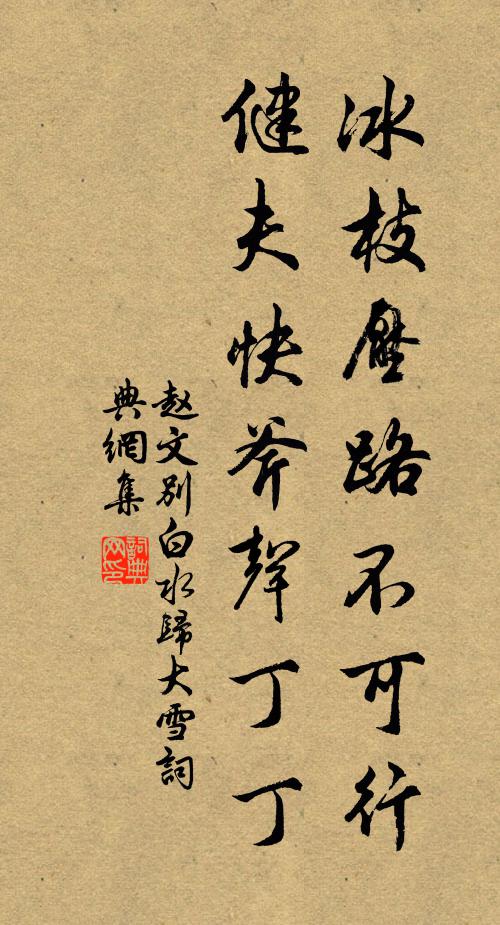 冰枝壓路不可行
健夫快斧聲丁丁
赵文別白水歸大雪詞
典網集
詞典网印